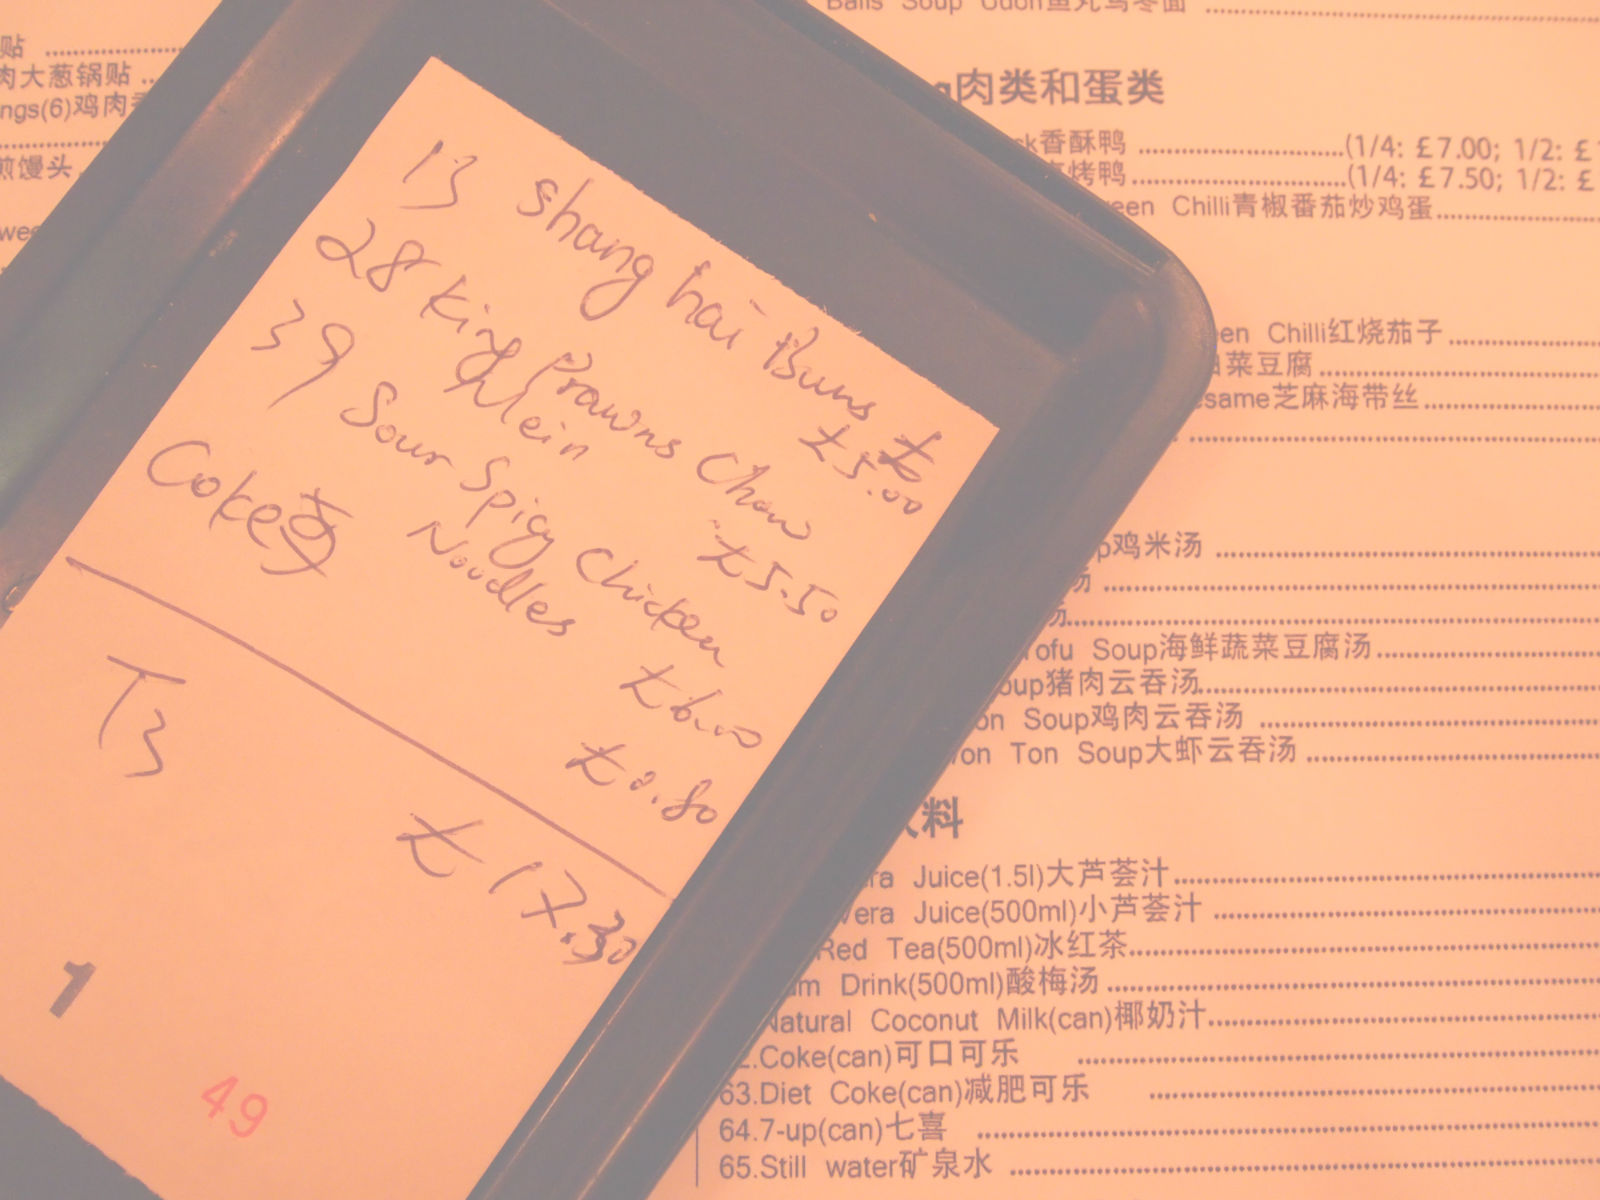 13 Shang hai Buns £5.00
28 King Prawns Chow
Mein £5.50
39 Sour Spicy Chicken
Noodles £6.00
Coke £0.80
T3 £17.30
1
49
贴
肉大葱锅贴
ngs(6)鸡肉
煎馒头
Balls Soup Udon鱼丸乌冬面
肉类和蛋类
ck香酥鸭 (1/4: £7.00; 1/2: £
烤鸭 (1/4: £7.50; 1/2: £
een Chilli青椒番茄炒鸡蛋
een Chilli红烧茄子
菜豆腐
esame芝麻海带丝
p鸡米汤
汤
汤
Tofu Soup海鲜蔬菜豆腐汤
oup猪肉云吞汤
on Soup鸡肉云吞汤
on Ton Soup大虾云吞汤
料
era Juice(1.5l)大芦荟汁
Vera Juice(500ml)小芦荟汁
Red Tea(500ml)冰红茶
um Drink(500ml)酸梅汤
Natural Coconut Milk(can)椰奶汁
2.Coke(can)可口可乐
63.Diet Coke(can)减肥可乐
64.7-up(can)七喜
65.Still water矿泉水